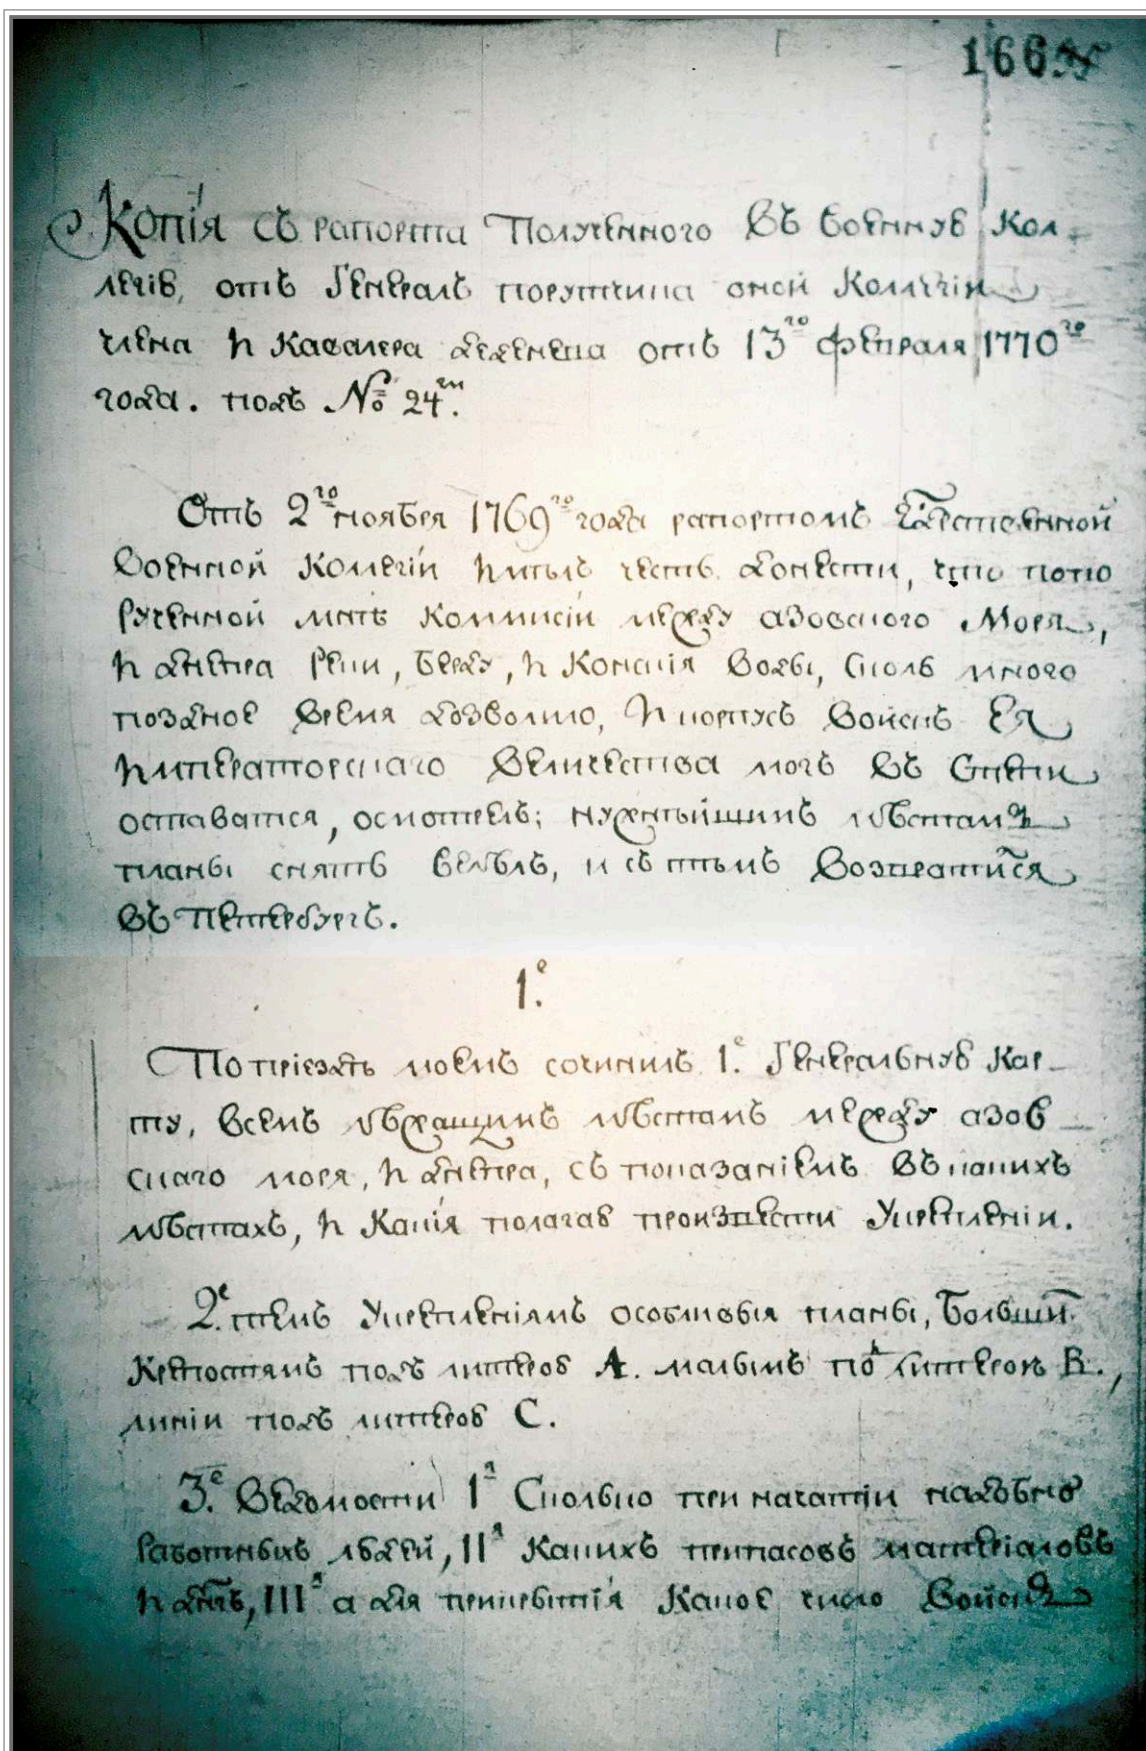 166
Копія съ рапорта Полученного Въ Военную Кол-
легію, отъ Генералъ порутчика оной Колегіи
члена и Кавалера Деденева отъ 13го февраля 1770го
года. подъ № 24м.
Отъ 2го ноября 1769го года рапортомъ
Военной Колегіи имѣлъ честь донести, что попо
рученной мнѣ Коммисіи между азовского Моря,
и Днепра реки, Берду, и Конскія Воды, сколь много
позdное время дозволило, и корпусъ Войскъ Ея
Императорскаго Величества могъ въ Степи
оставатся, осмотрелъ; нужнѣйшимъ мѣстамъ
планы снять велѣлъ, и съ тѣмъ Возвратился
Въ Петербургъ.
1.е
По приезdѣ моемъ сочинилъ 1.е Генеральную Кар-
ту, всемъ лѣжащимъ мѣстамъ между азов
скаго моря, и Днепра, съ показаніемъ Въкакихъ
мѣстахъ, и Какія полагаю произвести Укрепленіи.
2.е темъ Укрепленіямъ особливыя планы, Большим
Крепостямъ подъ литерою А. малымъ под литерою В.,
линіи подъ литерою С.
3.е Ведомости 1я Сколько при начатіи надобно
Работныхъ людей, IIя Какихъ припасовъ материаловъ
IIIя а для прикрытія Какое число Войскъ